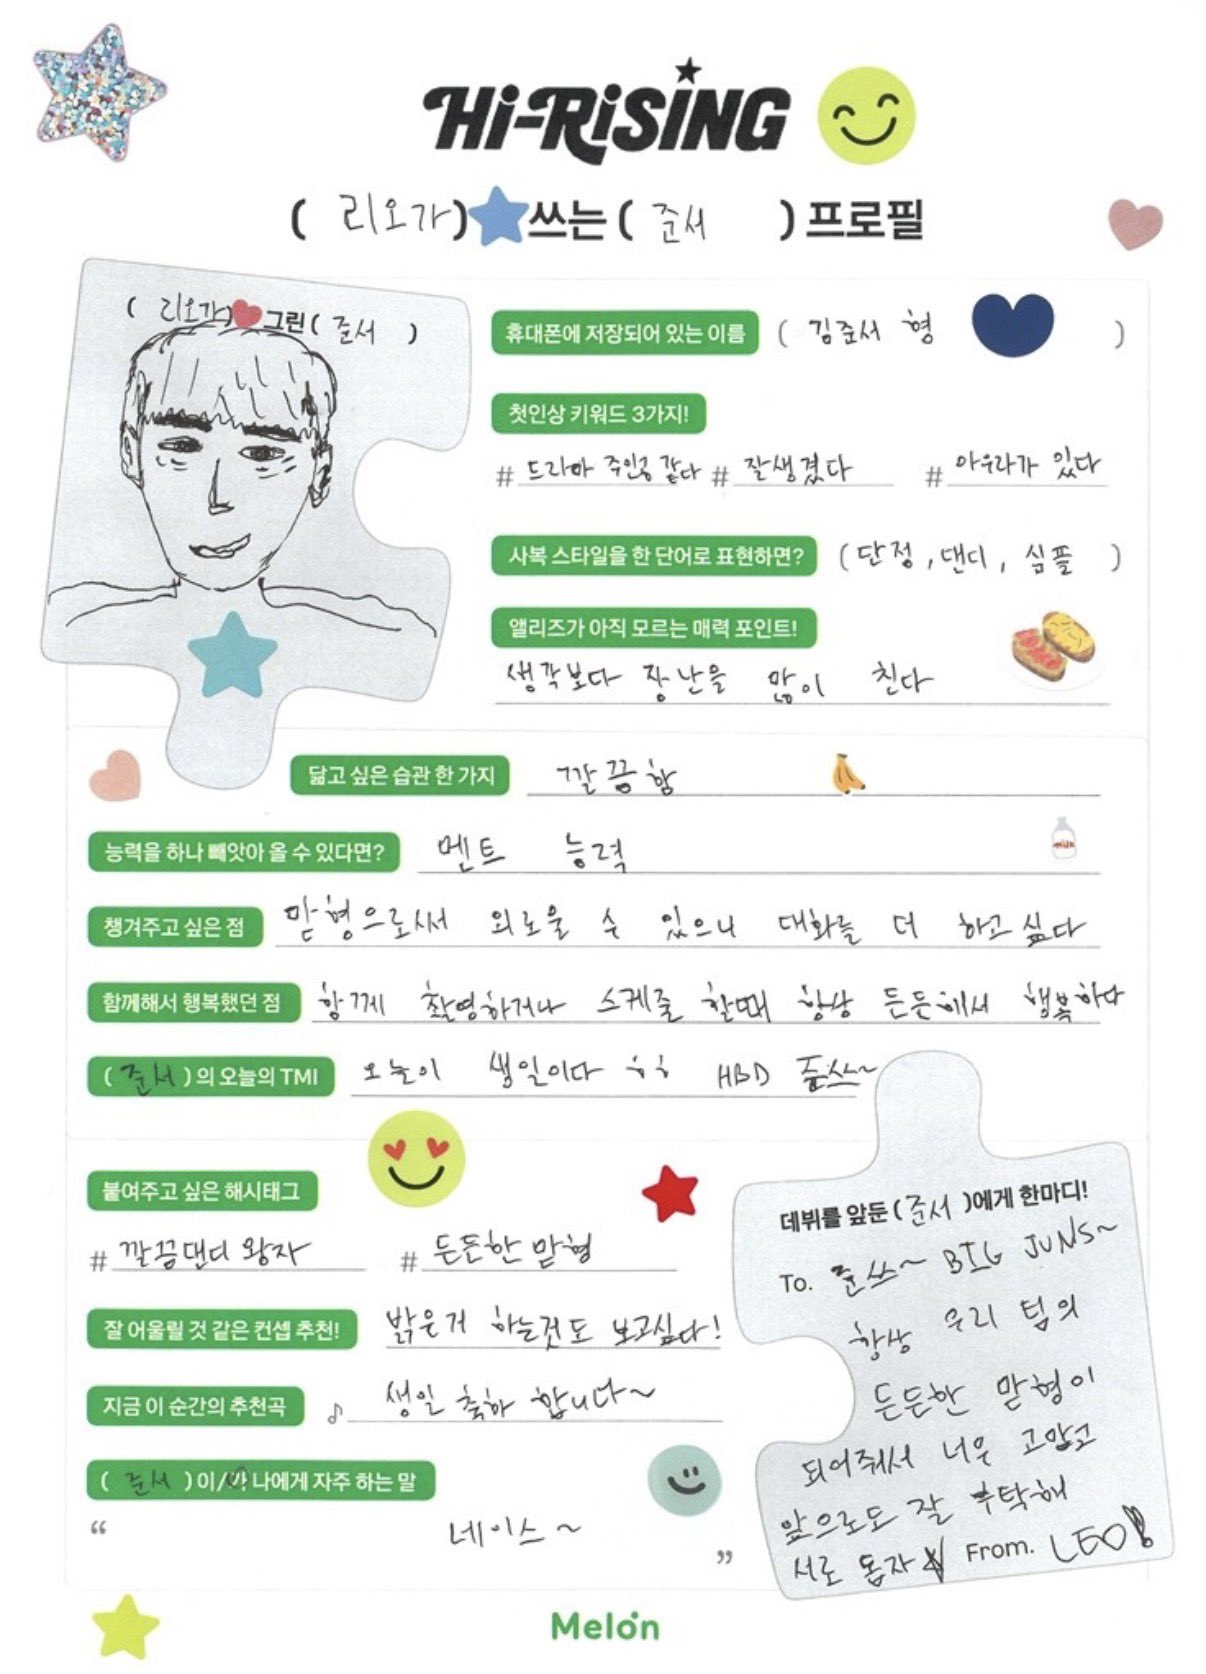 Hi-RiSiNG
( 리오가 ) 쓰는 ( 준서 ) 프로필
( 리오가 ) 그린 ( 준서 )
휴대폰에 저장되어 있는 이름 ( 김준서 형 )
첫인상 키워드 3가지!
# 드라마 주인공 같다 # 잘생겼다 # 아우라가 있다
사복 스타일을 한 단어로 표현하면? ( 단정, 댄디, 심플 )
앨리즈가 아직 모르는 매력 포인트!
생각보다 장난을 많이 친다
닮고 싶은 습관 한 가지 깔끔함
능력을 하나 빼앗아 올 수 있다면? 멘트 능력
milk
챙겨주고 싶은 점 맏형으로써 외로울 수 있으니 대화를 더 하고싶다
함께해서 행복했던 점 함께 촬영하거나 스케줄 할때 항상 든든해서 행복하다
( 준서 ) 의 오늘의 TMI 오늘이 생일이다 ㅎㅎ HBD 쭌쓰~
붙여주고 싶은 해시태그
# 깔끔댄디 왕자 # 든든한 맏형
잘 어울릴 것 같은 컨셉 추천! 밝은거 하는것도 보고싶다!
지금 이 순간의 추천곡 ♪ 생일 축하 합니다~
( 준서 ) 이/가 나에게 자주 하는 말
“ 네이스~ ”
데뷔를 앞둔 ( 준서 )에게 한마디!
To. 쭌쓰~ BIG JUNS~
항상 우리 팀의
든든한 맏형이
되어줘서 너무 고맙고
앞으로도 잘 부탁해
서로 돕자 From. LEO!
Melon